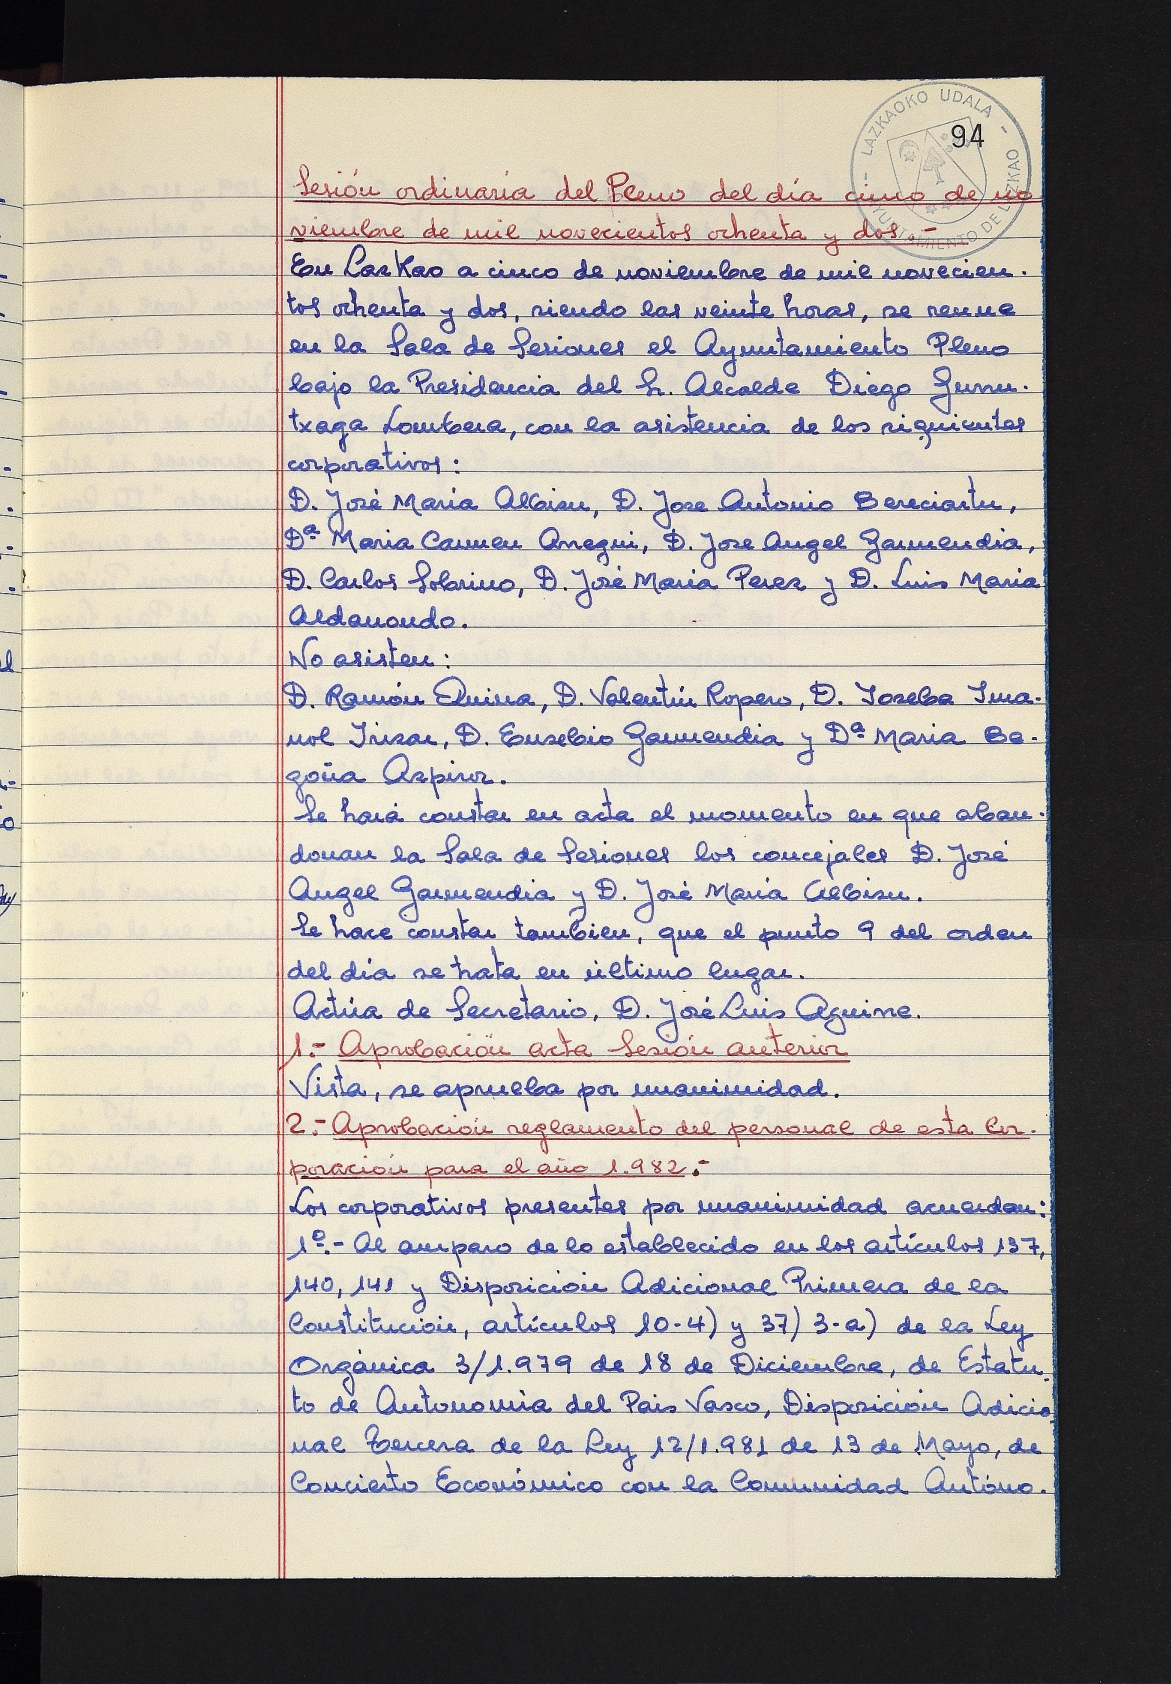 LAZKAOKO UDALA - AYUNTAMIENTO DE LAZKAO -
94
Sesión ordinaria del Pleno del día cinco de no
viembre de mil novecientos ochenta y dos.-
En Lazkao a cinco de noviembre de mil novecien-
tos ochenta y dos, siendo las veinte horas, se reune
en la Sala de Sesiones el Ayuntamiento Pleno
bajo la Presidencia del Sr. Alcalde Diego Gurru-
txaga Lombera, con la asistencia de los siguientes
corporativos:
D. José Maria Albisu, D. Jose Antonio Bereciartu,
Dª Maria Carmen Arregui, D. Jose Angel Garmendia,
D. Carlos Sobrino, D. José Maria Perez y D. Luis Maria
Aldanondo.
No asisten:
D. Ramón Quina, D. Valentín Ropero, D. Joseba Ima-
nol Irizar, D. Eusebio Garmendia y Dª Maria Be-
goña Azpiroz.
Se hará constar en acta el momento en que aban-
donan la Sala de Sesiones los concejales D. José
Angel Garmendia y D. José Maria Albisu.
Se hace constar tambien, que el punto 9 del orden
del día se trata en último lugar.
Actúa de Secretario, D. José Luis Aguirre.
1.- Aprobación acta Sesión anterior
Vista, se aprueba por unanimidad.
2.- Aprobación reglamento del personal de esta Cor-
poración para el año 1.982.-
Los corporativos presentes por unanimidad acuerdan:
1º.- Al amparo de lo establecido en los artículos 137,
140, 141 y Disposición Adicional Primera de la
Constitución, artículos 10-4) y 37) 3-a) de la Ley
Orgánica 3/1.979 de 18 de Diciembre, de Estatu-
to de Autonomía del Pais Vasco, Disposición Adicio
nal Tercera de la Ley 12/1.981 de 13 de Mayo, de
Concierto Económico con la Comunidad Autóno-